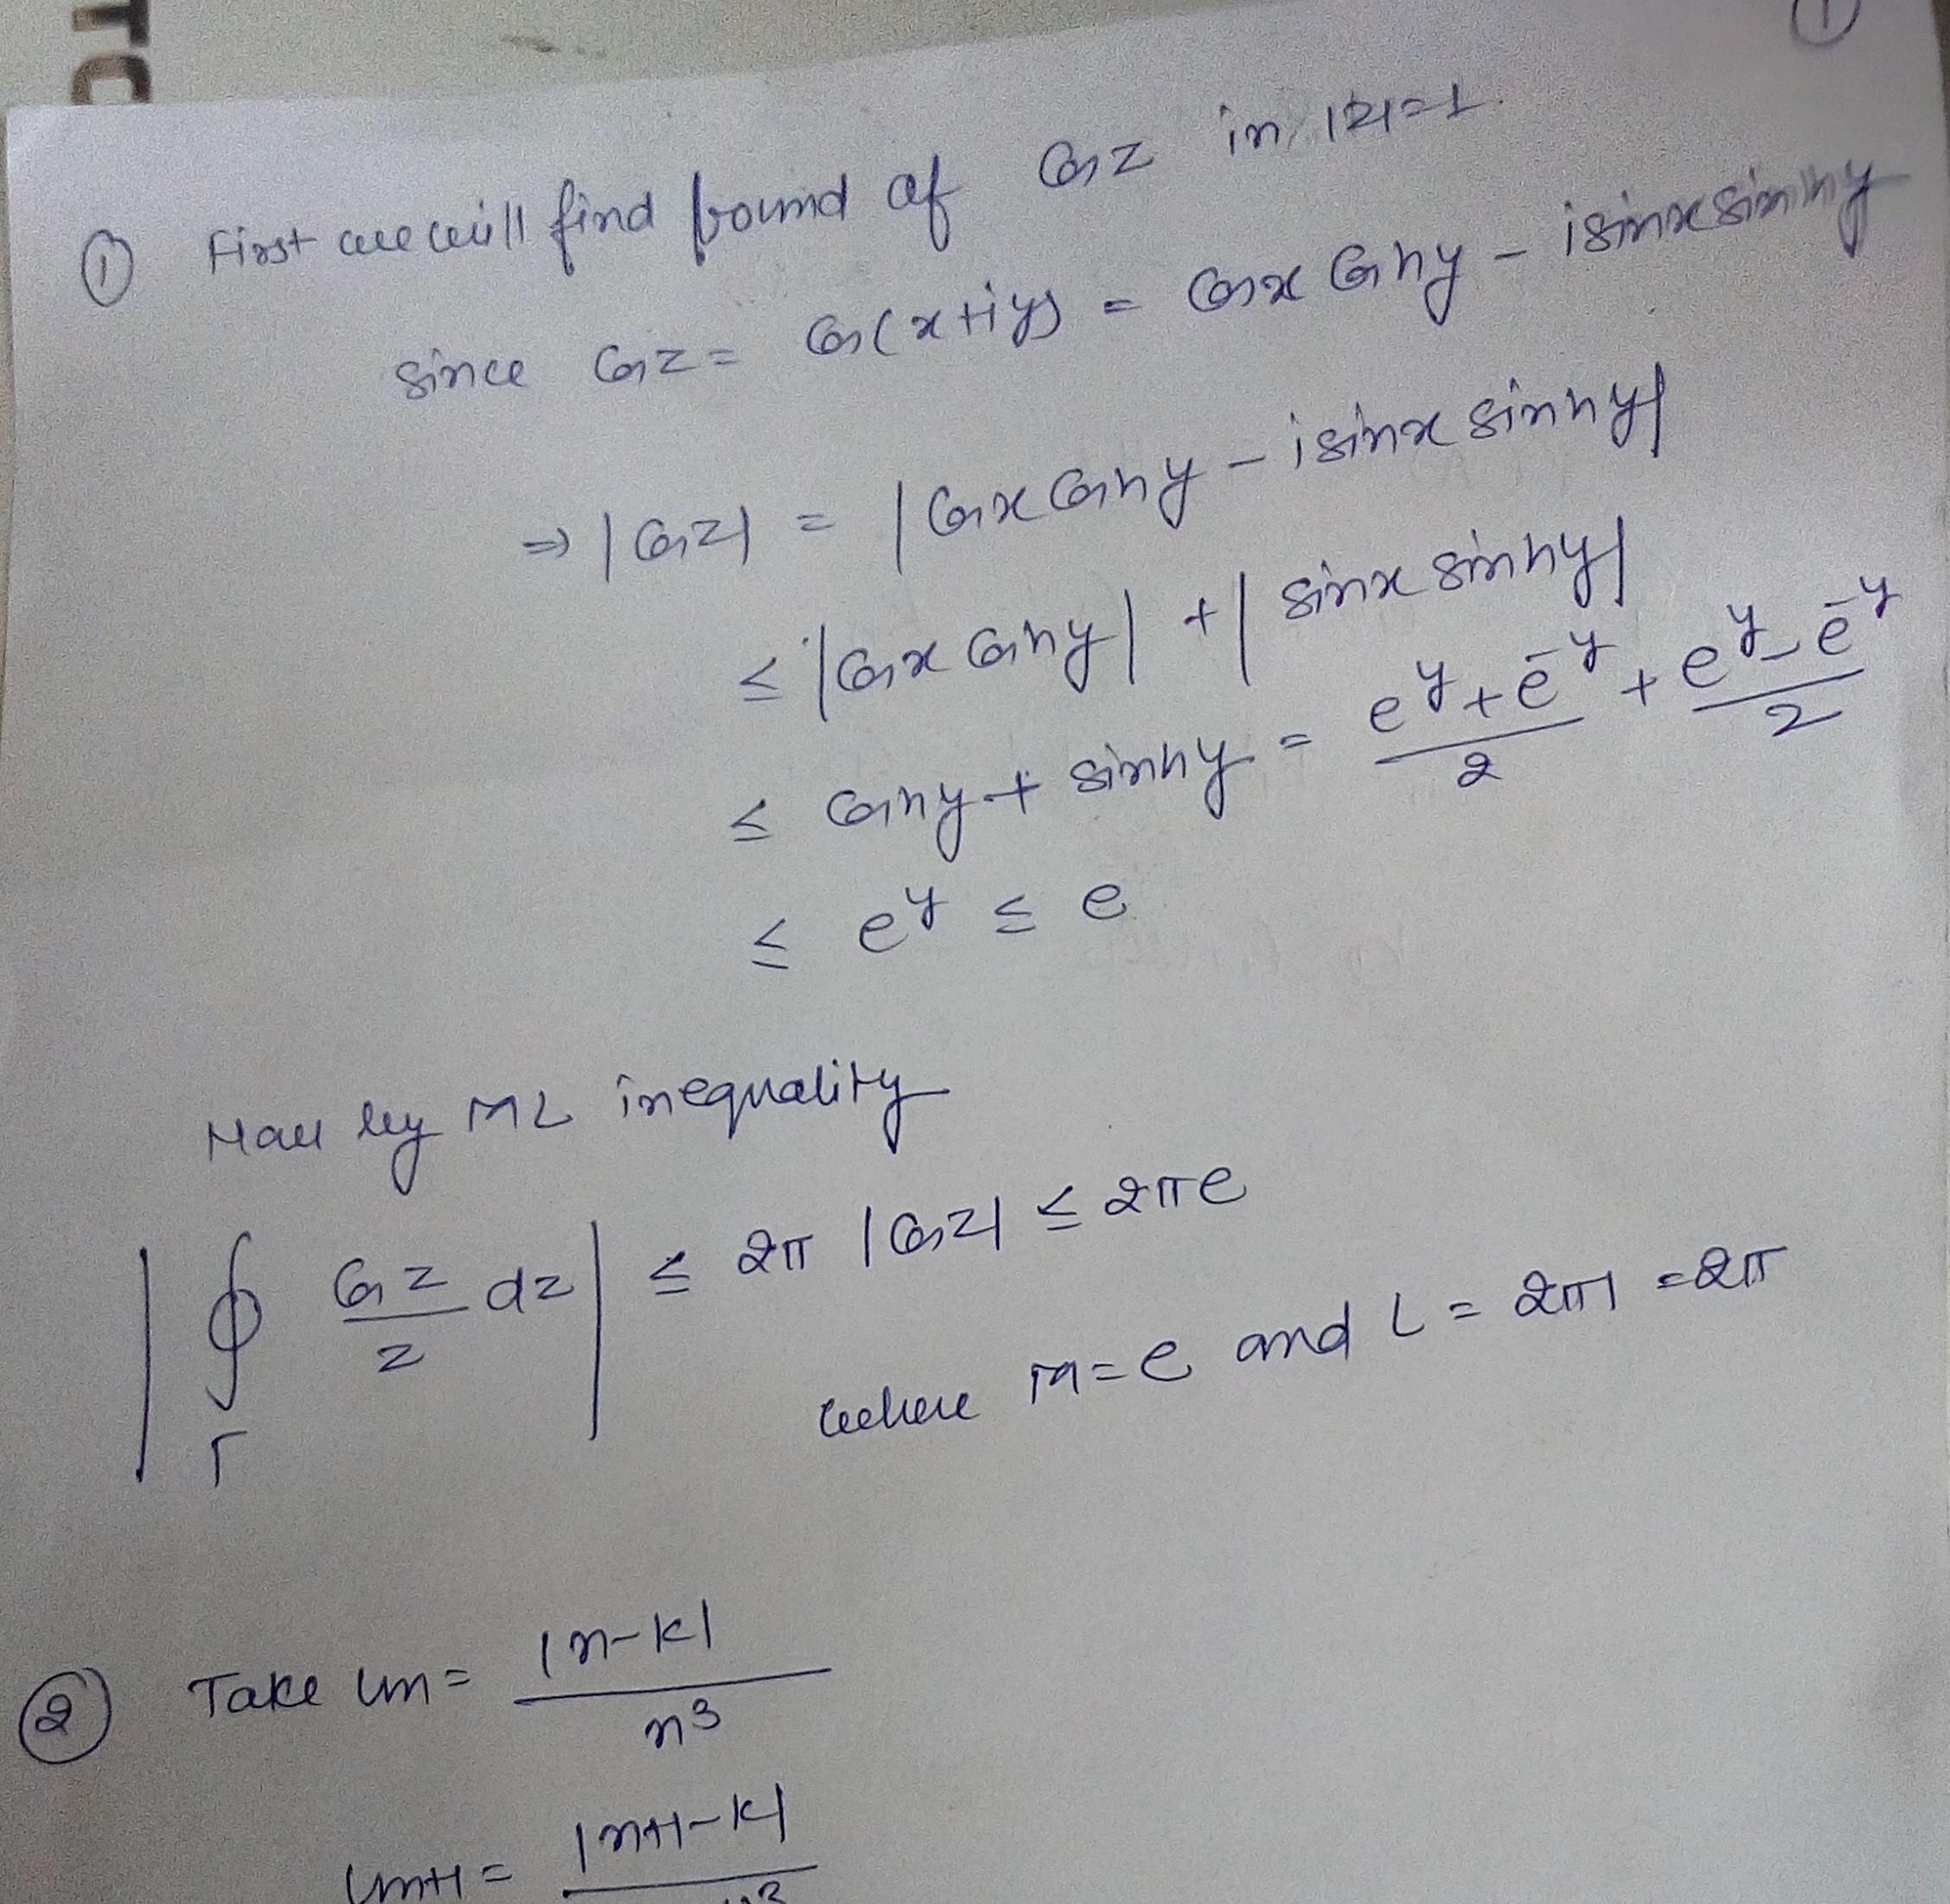 TC
①
① First we will find bound of Cos z in |z|=1.
since Cos z = Cos(x+iy) = Cosx Coshy - isinx sinhy
⇒ |Cos z| = |Cosx Coshy - isinx sinhy|
≤ |Cosx Coshy| + |sinx sinhy|
≤ Coshy + sinhy = (e^y + e^-y)/2 + (e^y - e^-y)/2
≤ e^y ≤ e
Now by ML inequality
|∮_Γ Cos z/z dz| ≤ 2π |Cos z| ≤ 2πe
where M=e and L = 2π1 = 2π
② Take Un = |n-k|/n^3
Un+1 = |n+1-k|